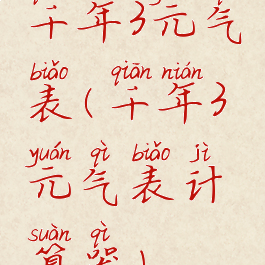 千年3元气
biǎo qiān nián
表(千年3
yuán qì biǎo jì
元气表计
suàn qì
算器)